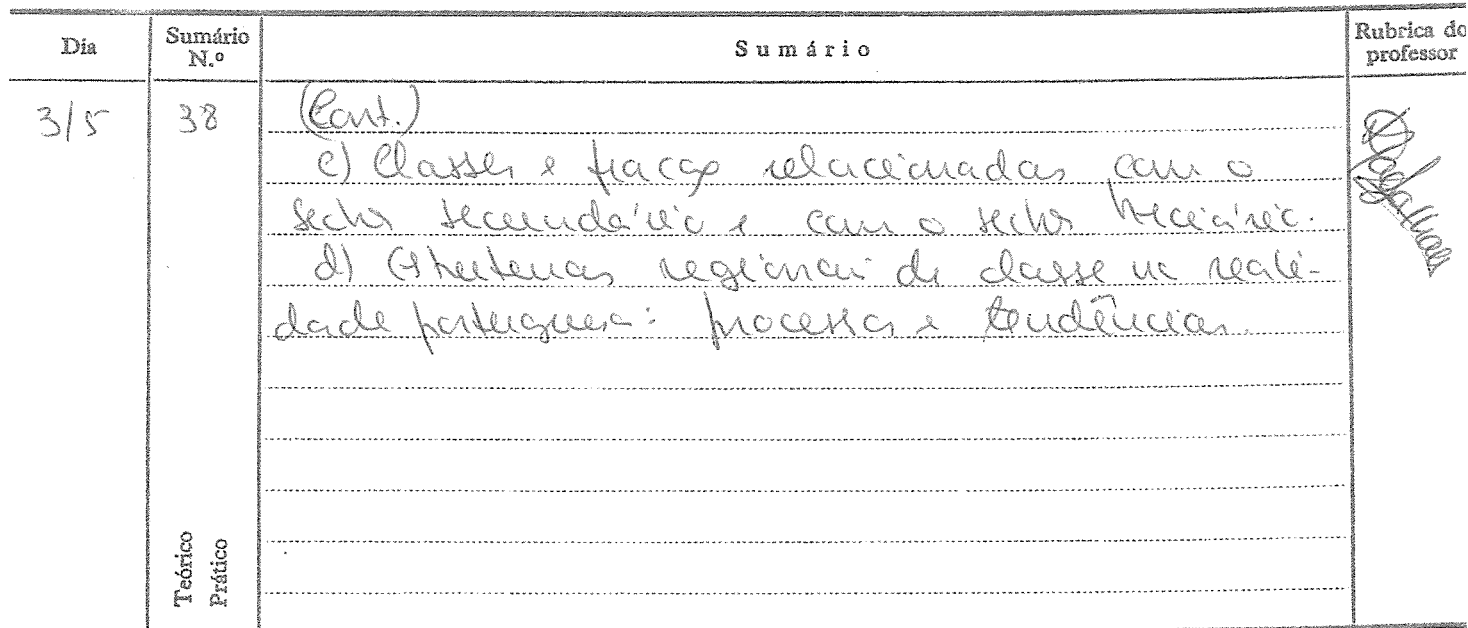 Dia
Sumário N.º
Sumário
Rubrica do professor
3/5
38
(Cont.)
c) Classes e fracções relacionadas com o
sector secundário e com o sector terciário.
d) Estruturas regionais de classe na reali-
dade portuguesa: processos e tendências.
Teórico
Prático